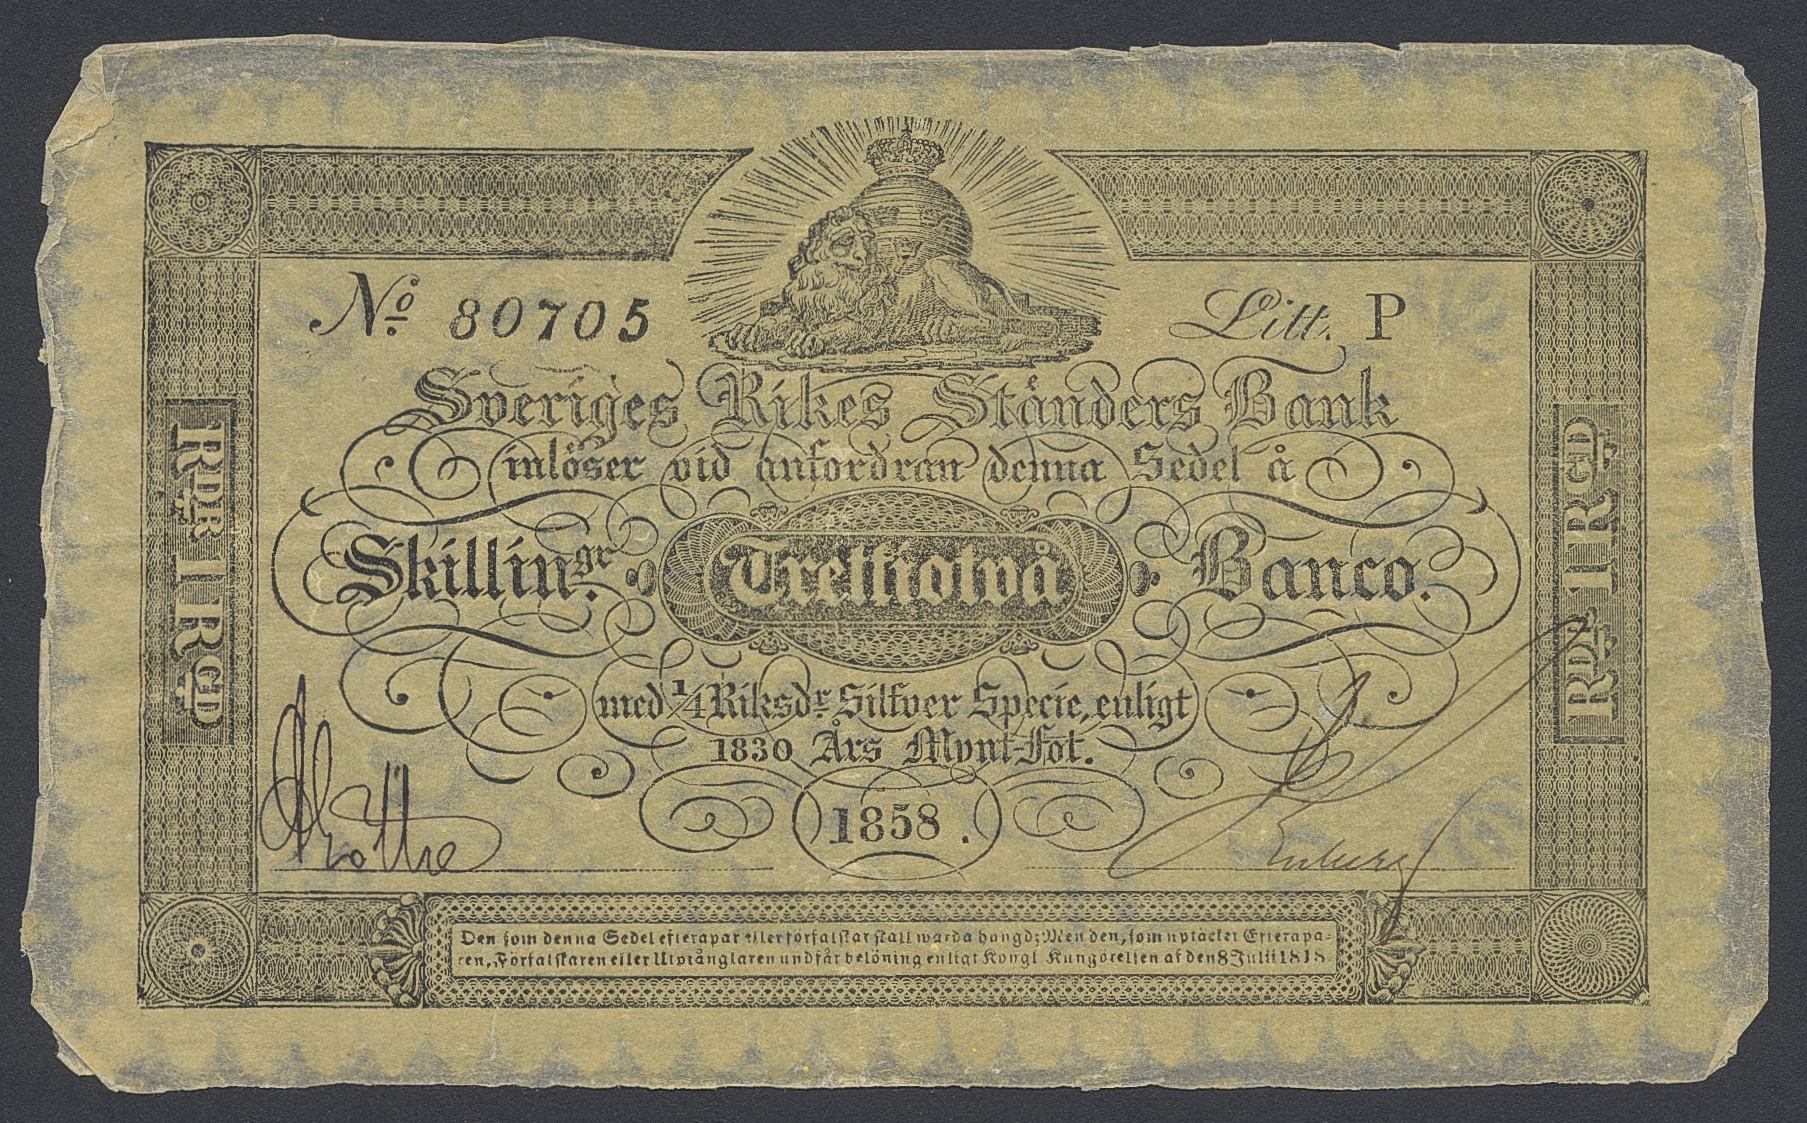 No 80705
Litt. P
Sveriges Rikes Ständers Bank
inlöser vid anfordran denna Sedel å
Skillingr. Trettiotvå Banco.
med 1/4 Riksdr Silfver Specie, enligt
1830 Års Mynt-Fot.
1858.
Den som denna Sedel efterapar eller förfalskar skall warda hängd; Men den, som uptäcker Efterapa-
ren, Förfalskaren eller Utprånglaren undfår belöning enligt Kongl Kungörelsen af den 8 Julii 1818.
RDR 1 RGD
RDR 1 RGD